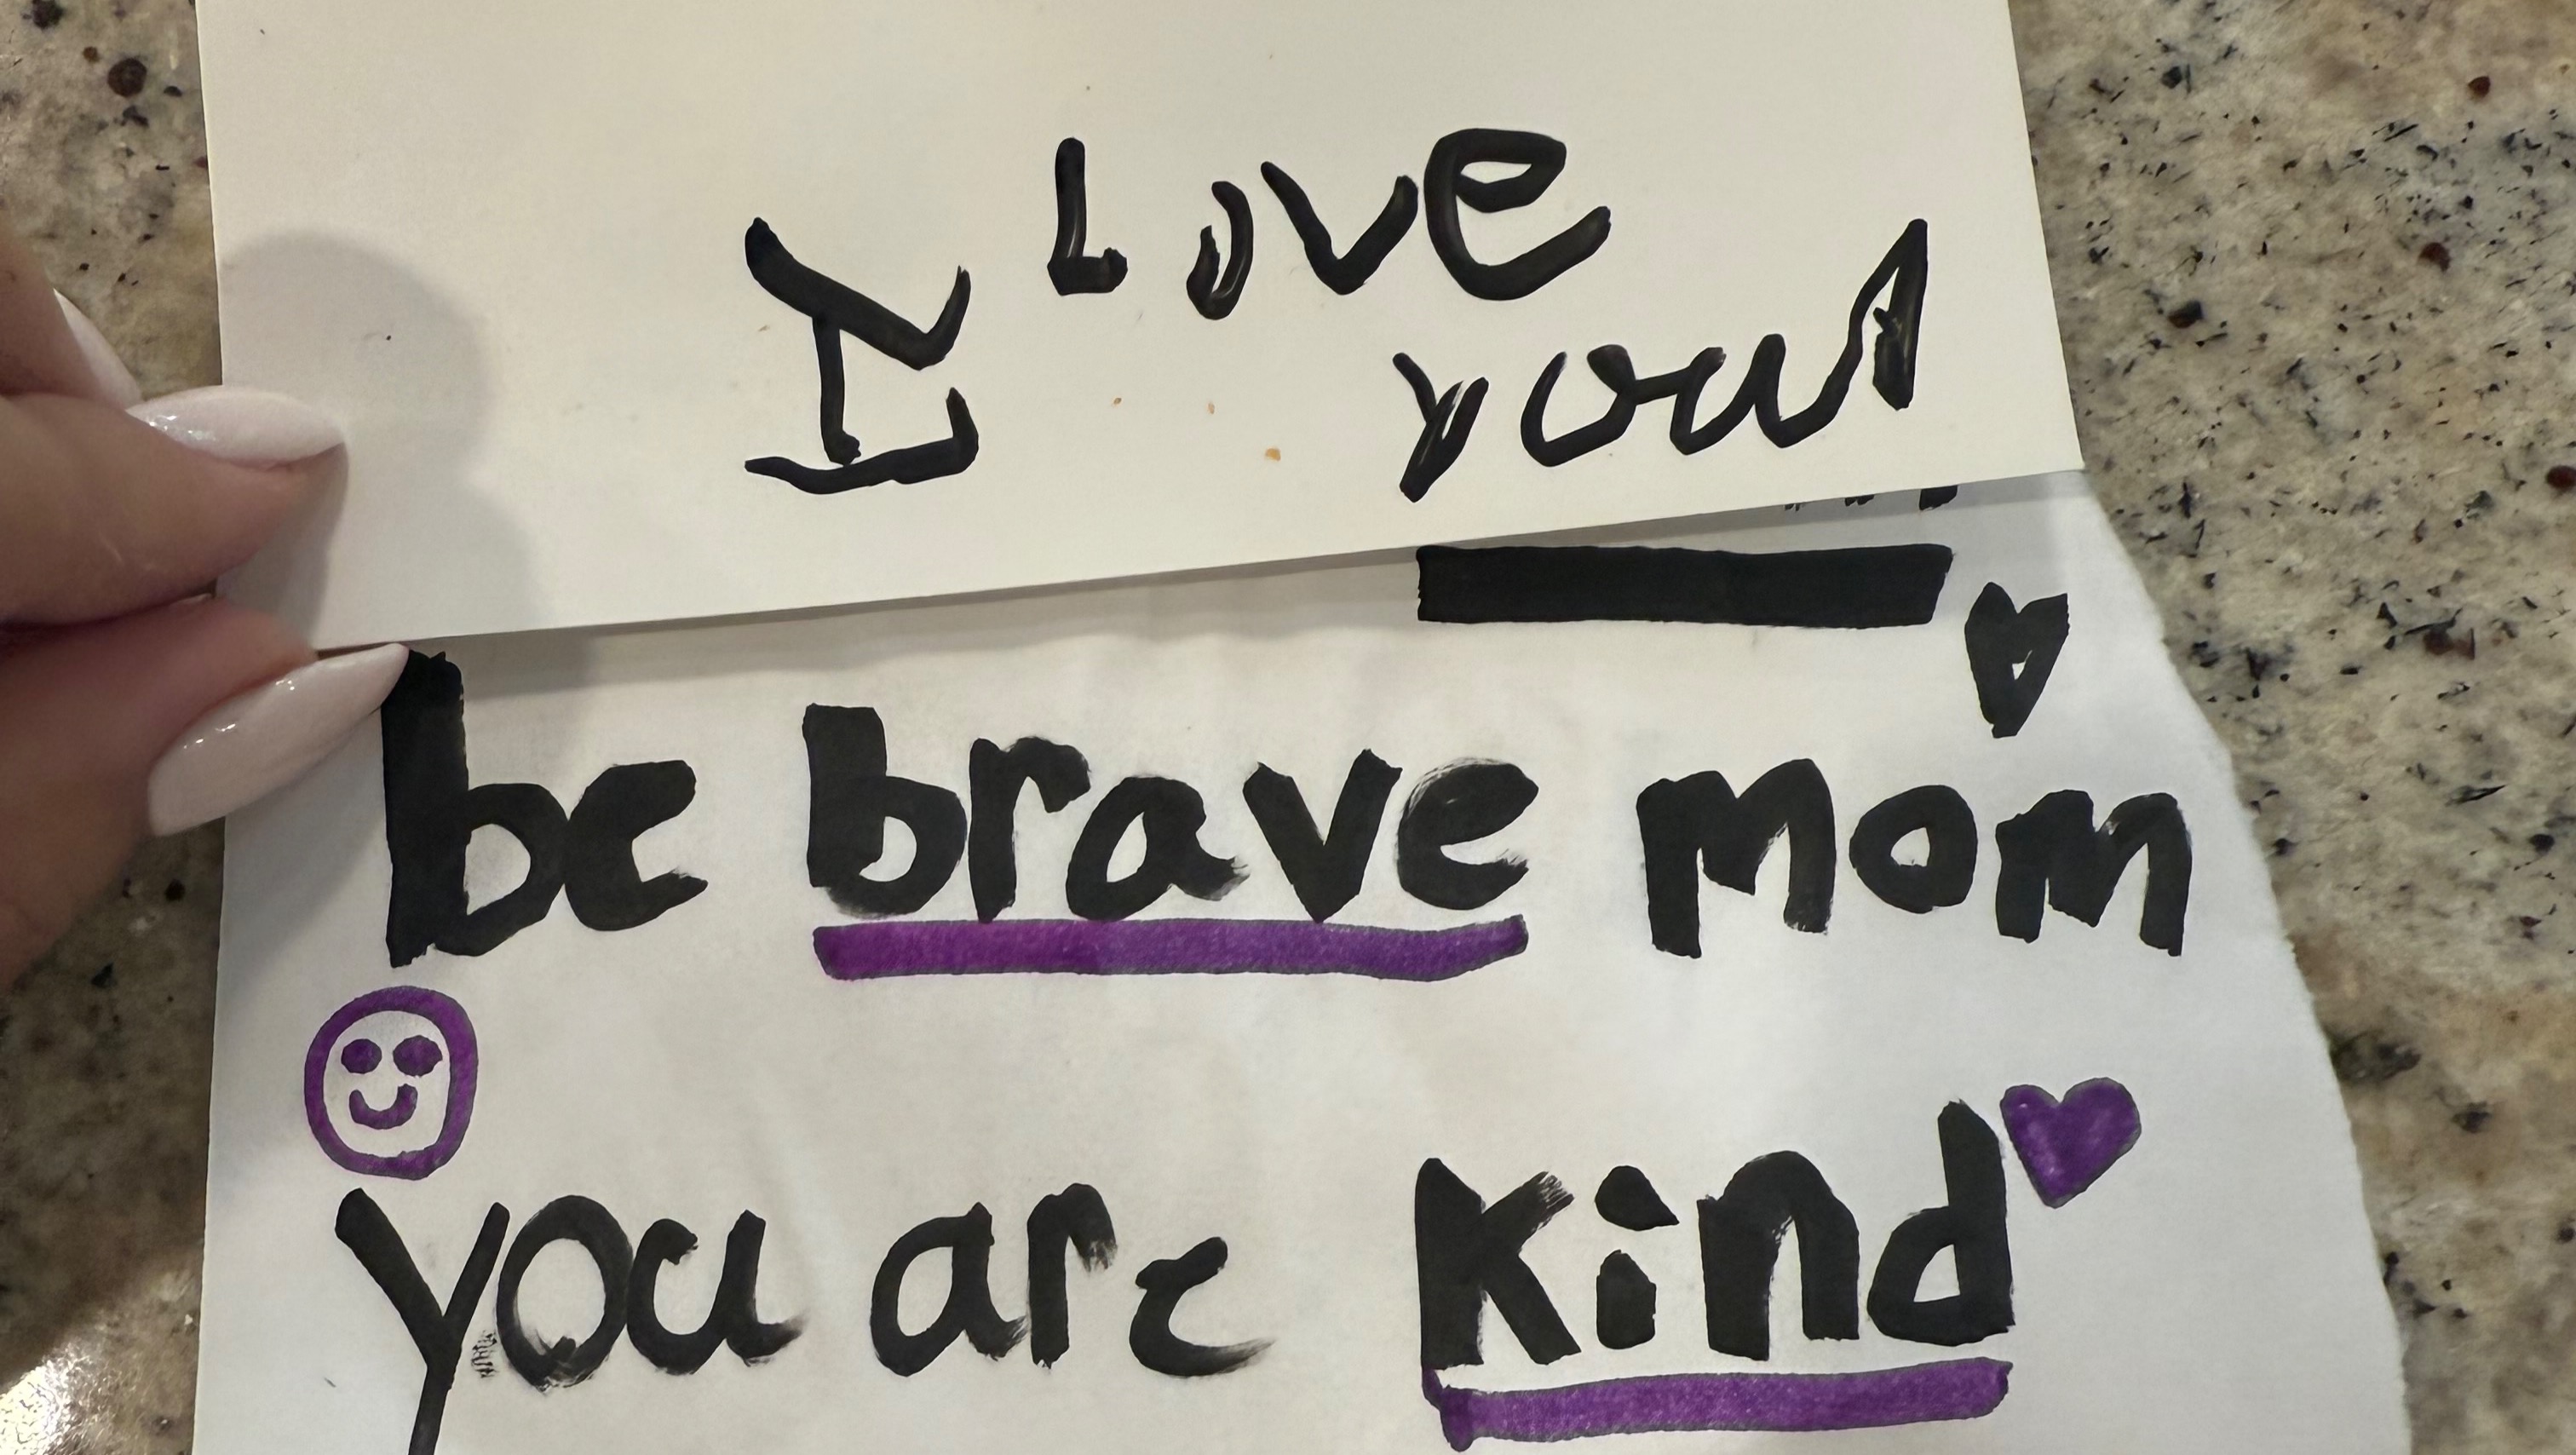 I Love
you!
be brave mom
you are kind